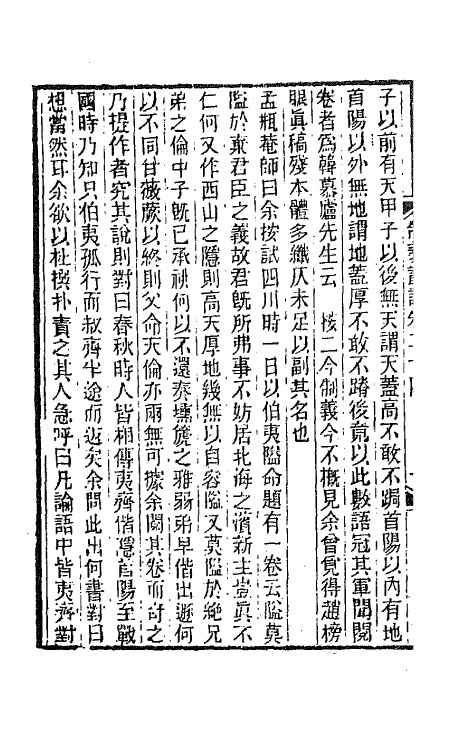 子以前有天甲子以後無天謂天蓋高不敢不跼首陽以內有地
首陽以外無地謂地蓋厚不敢不蹐後竟以此數語冠其軍聞閱
卷者爲韓慕廬先生云　棱二今制義今不槪見余曾覓得趙榜
眼眞稿殘本體多纖仄未足以副其名也
孟瓶菴師曰余按試四川時一日以伯夷隘命題有一卷云隘莫
隘於棄君臣之義故君旣所弗事不妨居北海之濱新主豈眞不
仁何又作西山之隱則高天厚地幾無以自容隘又莫隘於絶兄
弟之倫中子旣已承祧何以不還奏壎箎之雅弱弟早偕出遜何
以不同甘薇蕨以終則父命天倫亦兩無可據余閱其卷而奇之
乃提作者究其說則對曰春秋時人皆相傳夷齊偕隱首陽至戰
國時乃知只伯夷孤行而叔齊半途而返矣余問此出何書對曰
想當然耳余欲以杜撰扑責之其人急呼曰凡論語中皆夷齊對